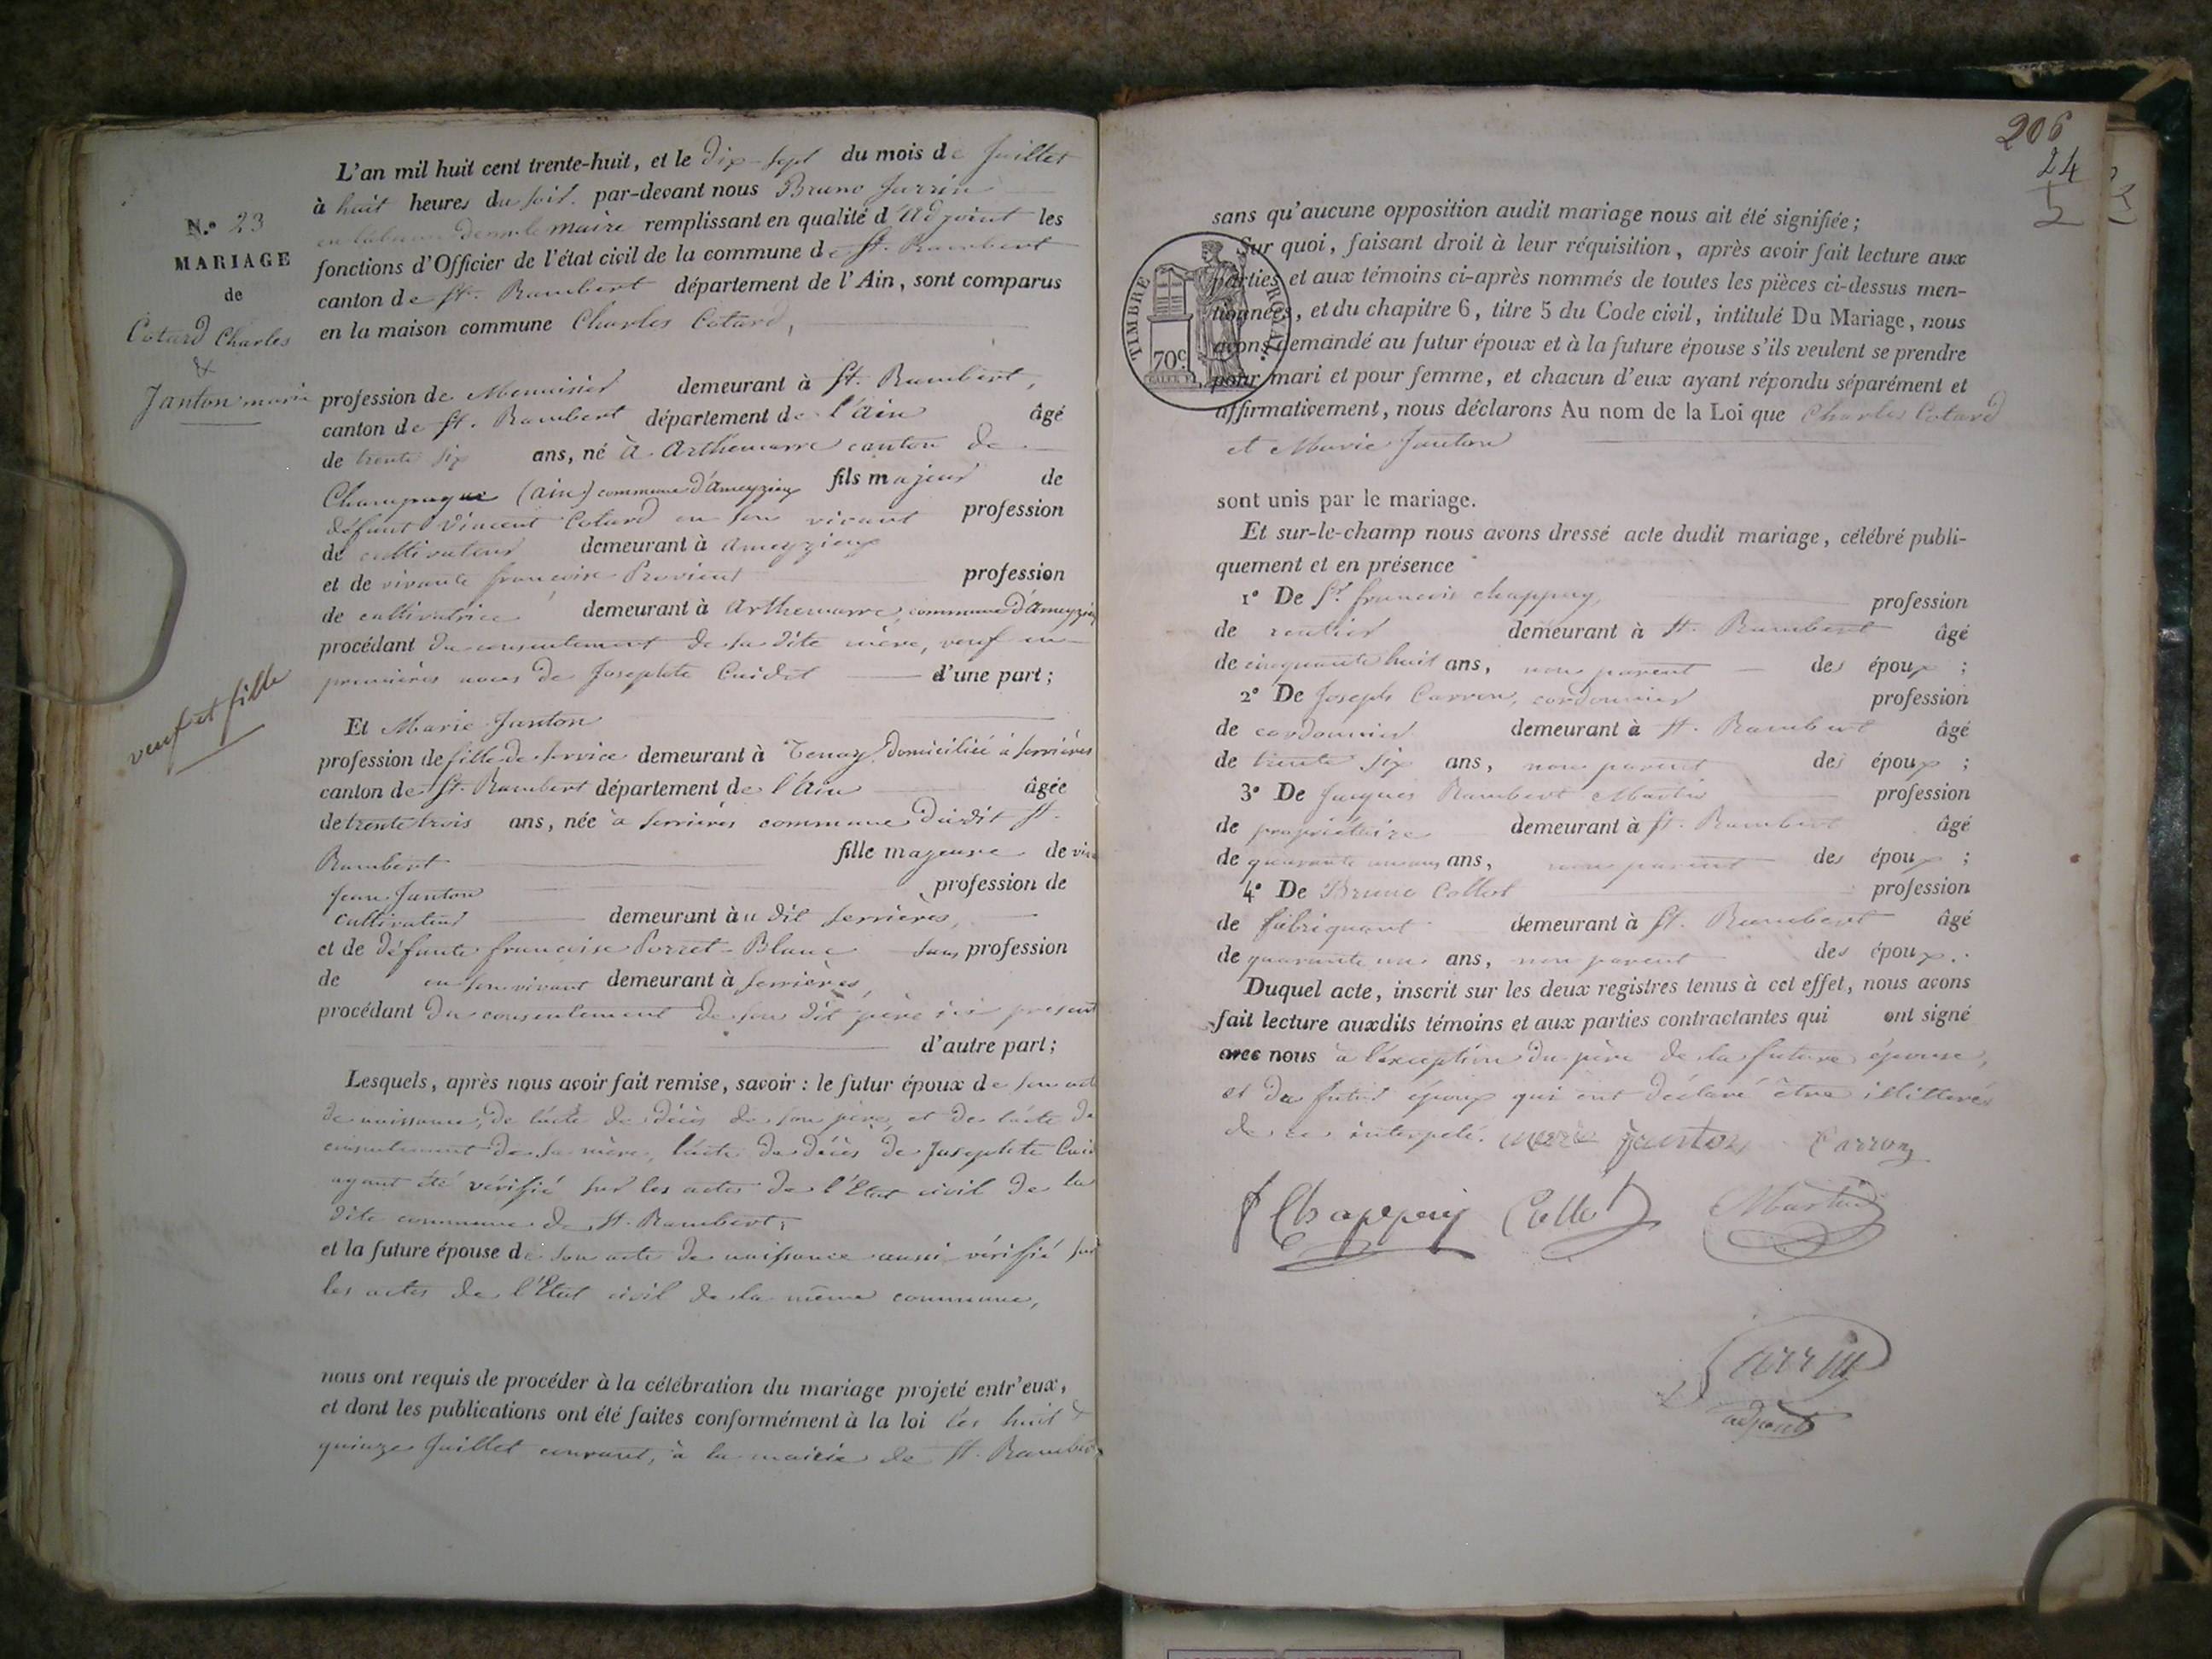 L'an mil huit cent trente-huit, et le dix-sept du mois de Juillet
à huit heures du soir. par-devant nous Bruno Jarrin
en l'absence de mr. le maire remplissant en qualité d'Adjoint les
fonctions d'Officier de l'état civil de la commune de St. Rambert
canton de St. Rambert département de l'Ain, sont comparus
en la maison commune Charles Cotard,
N.º 23
MARIAGE
de
Cotard Charles
&
Janton marie
profession de Menuisier demeurant à St. Rambert,
canton de St. Rambert département de l'Ain âgé
de trente six ans, né à Arthemarre canton de
Champagne (ain) commune d'Ameyzieu fils majeur de
défunt Vincent Cotard en son vivant profession
de cultivateur demeurant à Ameyzieux
et de vivante francoise profession
de cultivatrice demeurant à Arthemarre, commune d'Ameyzieu
procédant du consentement de sa dite mère, veuf en
premières noces de Josephte Cuidet d'une part;
veuf et fille
Et Marie Janton
profession de fille de service demeurant à Tenay, domiciliée à Serrières
canton de St. Rambert département de l'Ain âgée
de trente trois ans, née à Serrières commune dudit St.
Rambert fille majeure de
Jean Janton profession de
cultivateur demeurant au dit Serrières,
et de défunte francoise Porret-Blanc sans profession
de en son vivant demeurant à Serrières,
procédant du consentement de son dit père ici présent
d'autre part;
Lesquels, après nous avoir fait remise, savoir: le futur époux de son acte
de naissance, de l'acte de décès de son père, et de l'acte de
consentement de sa mère, l'acte de décès de Josephte
ayant été vérifié sur les actes de l'Etat civil de la
dite commune de St. Rambert;
et la future épouse de son acte de naissance aussi vérifié sur
les actes de l'Etat civil de la même commune,
nous ont requis de procéder à la célébration du mariage projeté entr'eux,
et dont les publications ont été faites conformément à la loi les huit &
quinze Juillet courant, à la mairie de St. Rambert
206
24
5
sans qu'aucune opposition audit mariage nous ait été signifiée;
Sur quoi, faisant droit à leur réquisition, après avoir fait lecture aux
parties et aux témoins ci-après nommés de toutes les pièces ci-dessus men-
tionnées, et du chapitre 6, titre 5 du Code civil, intitulé Du Mariage, nous
avons demandé au futur époux et à la future épouse s'ils veulent se prendre
pour mari et pour femme, et chacun d'eux ayant répondu séparément et
affirmativement, nous déclarons Au nom de la Loi que Charles Cotard
et Marie Janton
TIMBRE ROYAL.
70c.
sont unis par le mariage.
Et sur-le-champ nous avons dressé acte dudit mariage, célébré publi-
quement et en présence
1º De Sr. francois chappuy, profession
de rentier demeurant à St. Rambert âgé
de cinquante huit ans, non parent des époux;
2º De Joseph Carron, cordonnier profession
de cordonnier demeurant à St. Rambert âgé
de trente six ans, non parent des époux;
3º De Jacques Rambert Martin profession
de propriétaire demeurant à St. Rambert âgé
de quarante ans, non parent des époux;
4º De Bruno Collet profession
de fabriquant demeurant à St. Rambert âgé
de quarante un ans, non parent des époux.
Duquel acte, inscrit sur les deux registres tenus à cet effet, nous avons
fait lecture auxdits témoins et aux parties contractantes qui ont signé
avec nous à l'exception du père de la future épouse,
et du futur époux qui ont déclaré être illitterés
de ce interpelé. marie Janton Carron
Chappuy Collet Martin
Jarrin
adjoint